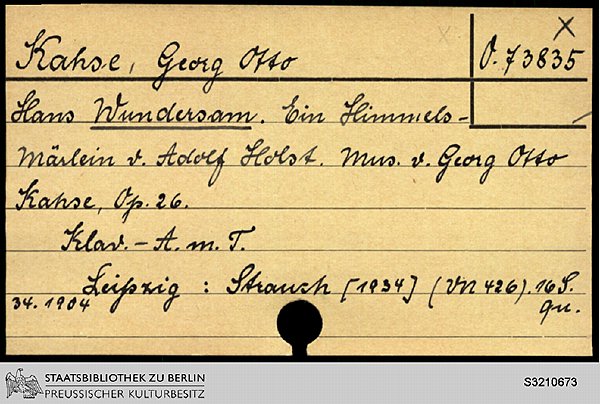 Kahse, Georg Otto
O. 73835
X
Hans Wundersam. Ein Himmels-
Märlein v. Adolf Holst. Mus. v. Georg Otto
Kahse, Op. 26.
Klav.-A. m. T.
Leipzig : Strauch [1934] (VN 426). 16 S.
34. 1904
qu.
STAATSBIBLIOTHEK ZU BERLIN
PREUSSISCHER KULTURBESITZ
S3210673